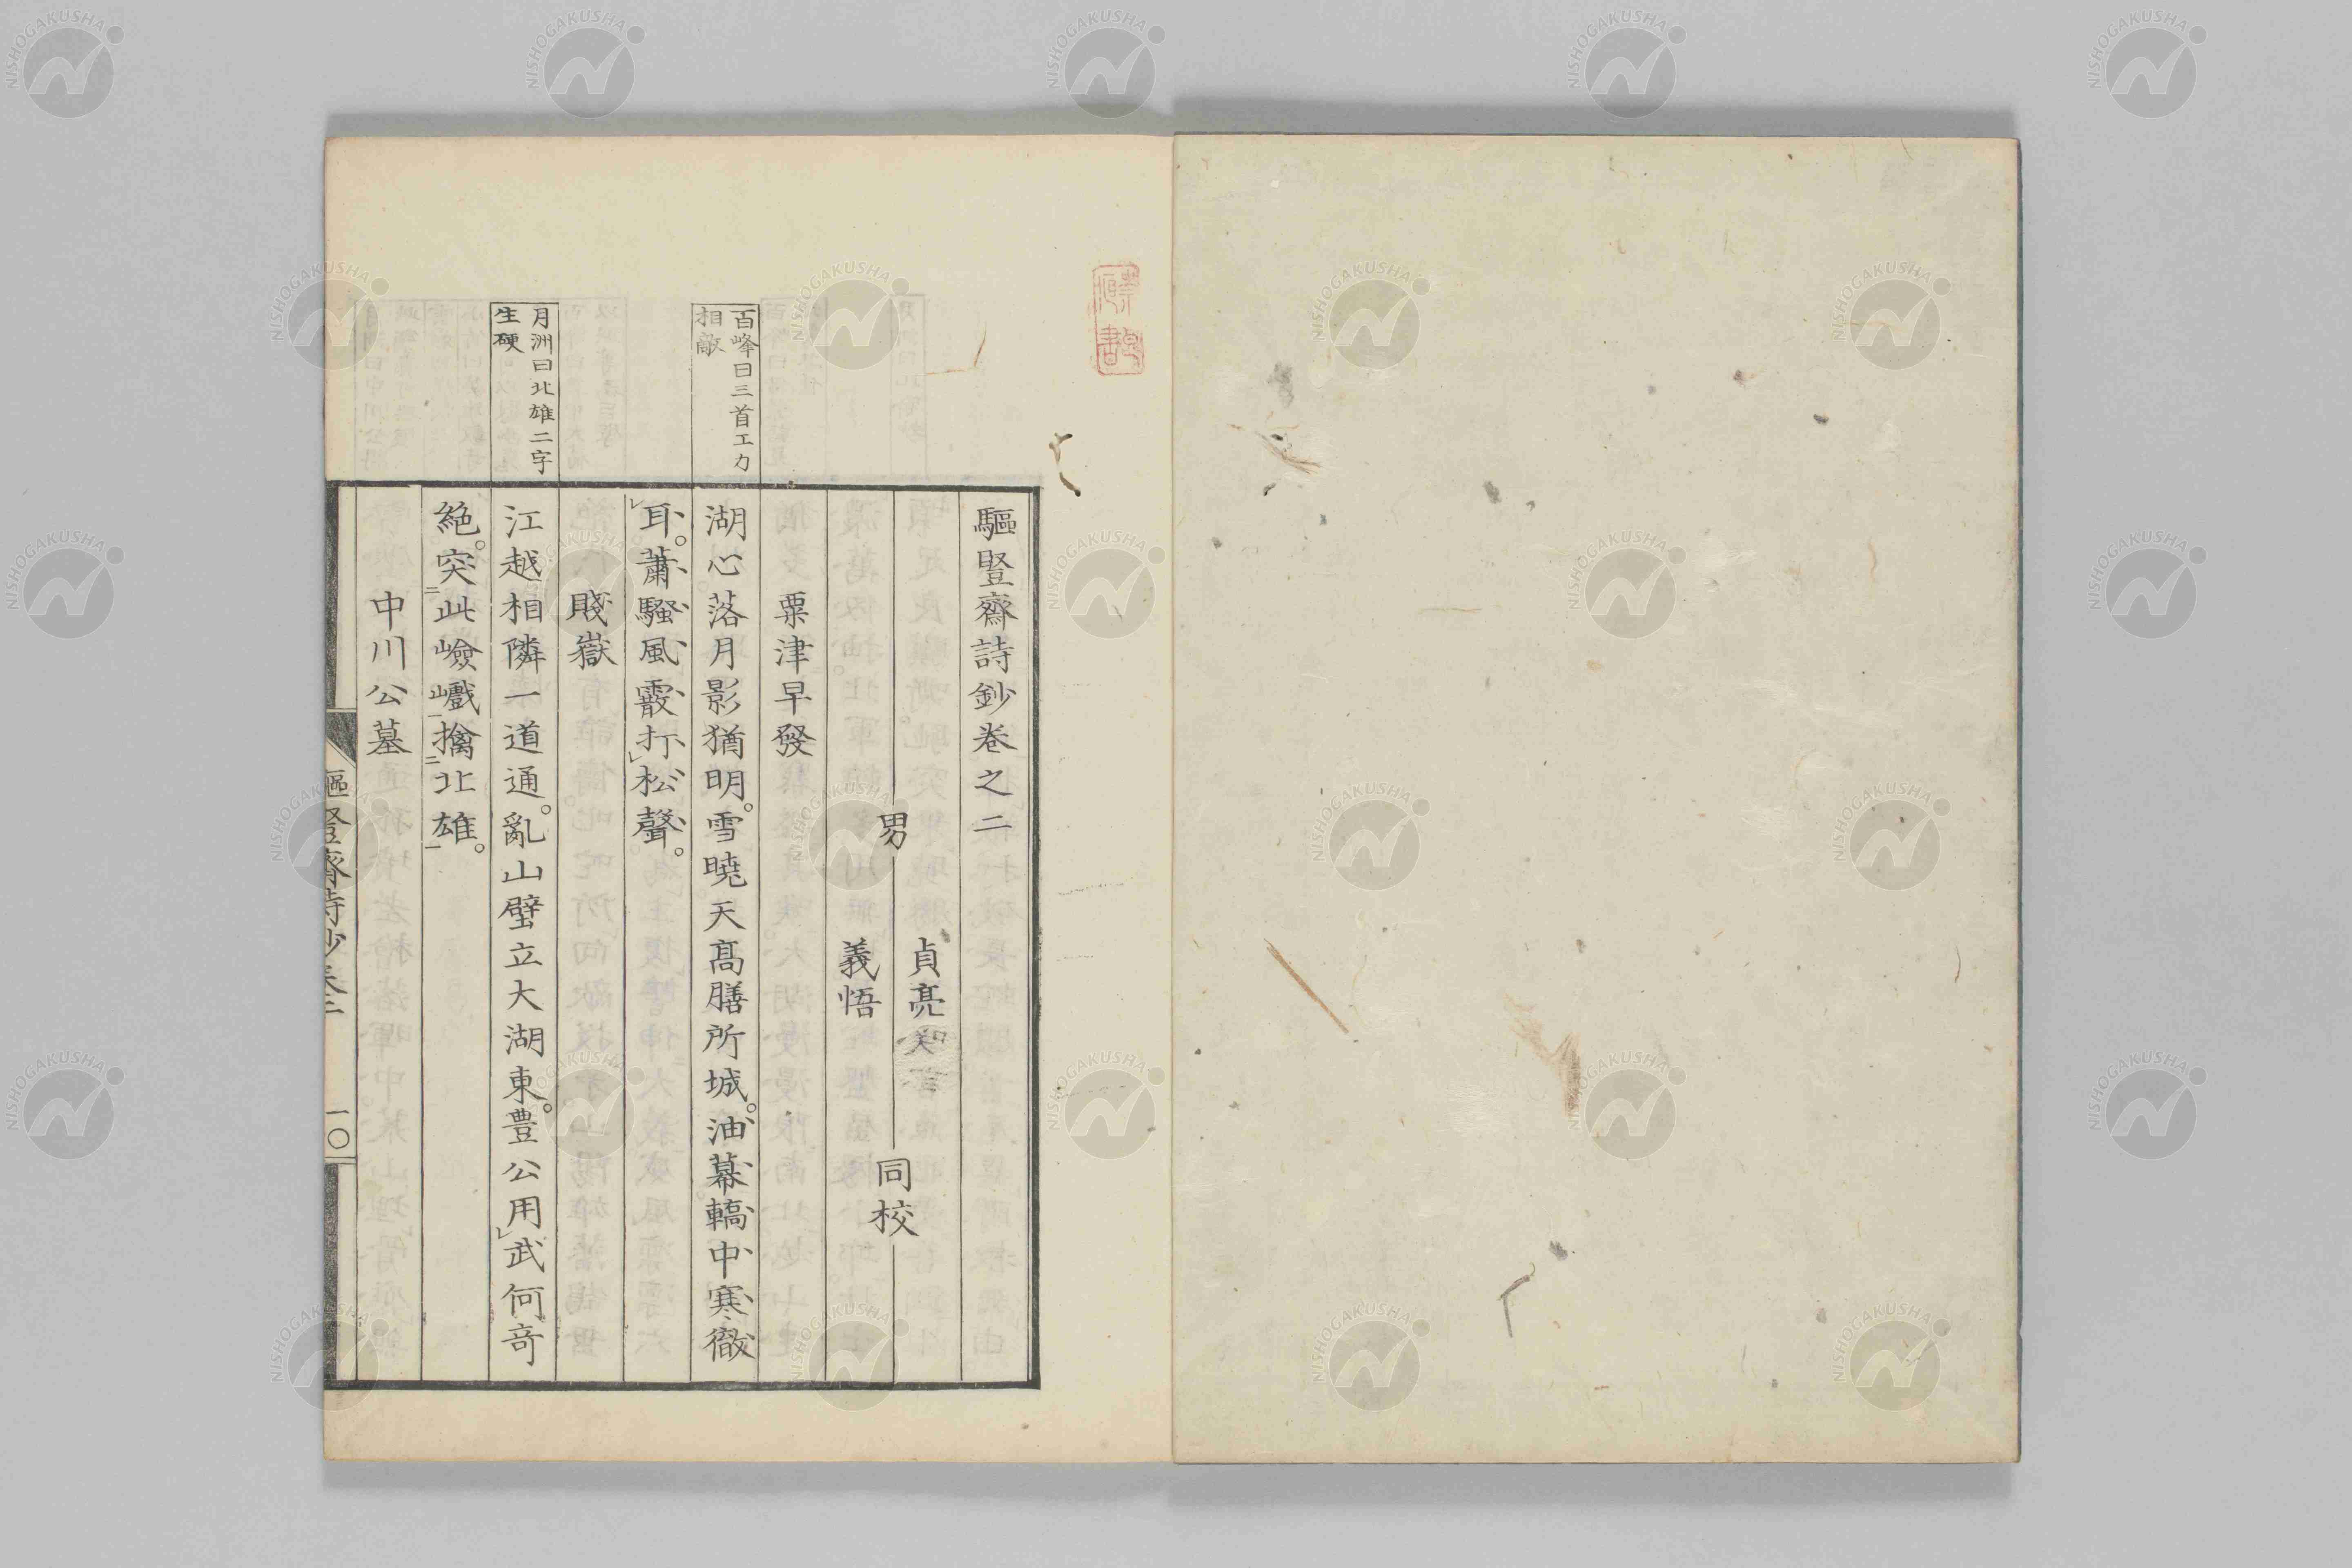 驅豎齋詩鈔卷之二
男
貞亮
義悟
同校
粟津早發
百峰曰三首工力
相敵
湖心落月影猶明。雪曉天髙膳所城。油幕轎中寒徹
耳。蕭騷風霰打松聲。
賤嶽
月洲曰北雄二字
生硬
江越相隣一道通。亂山壁立大湖東。豊公用武何奇
絕。突此嶮巇擒北雄。
中川公墓
驅豎齋詩鈔卷二
一〇
NISHOGAKUSHA